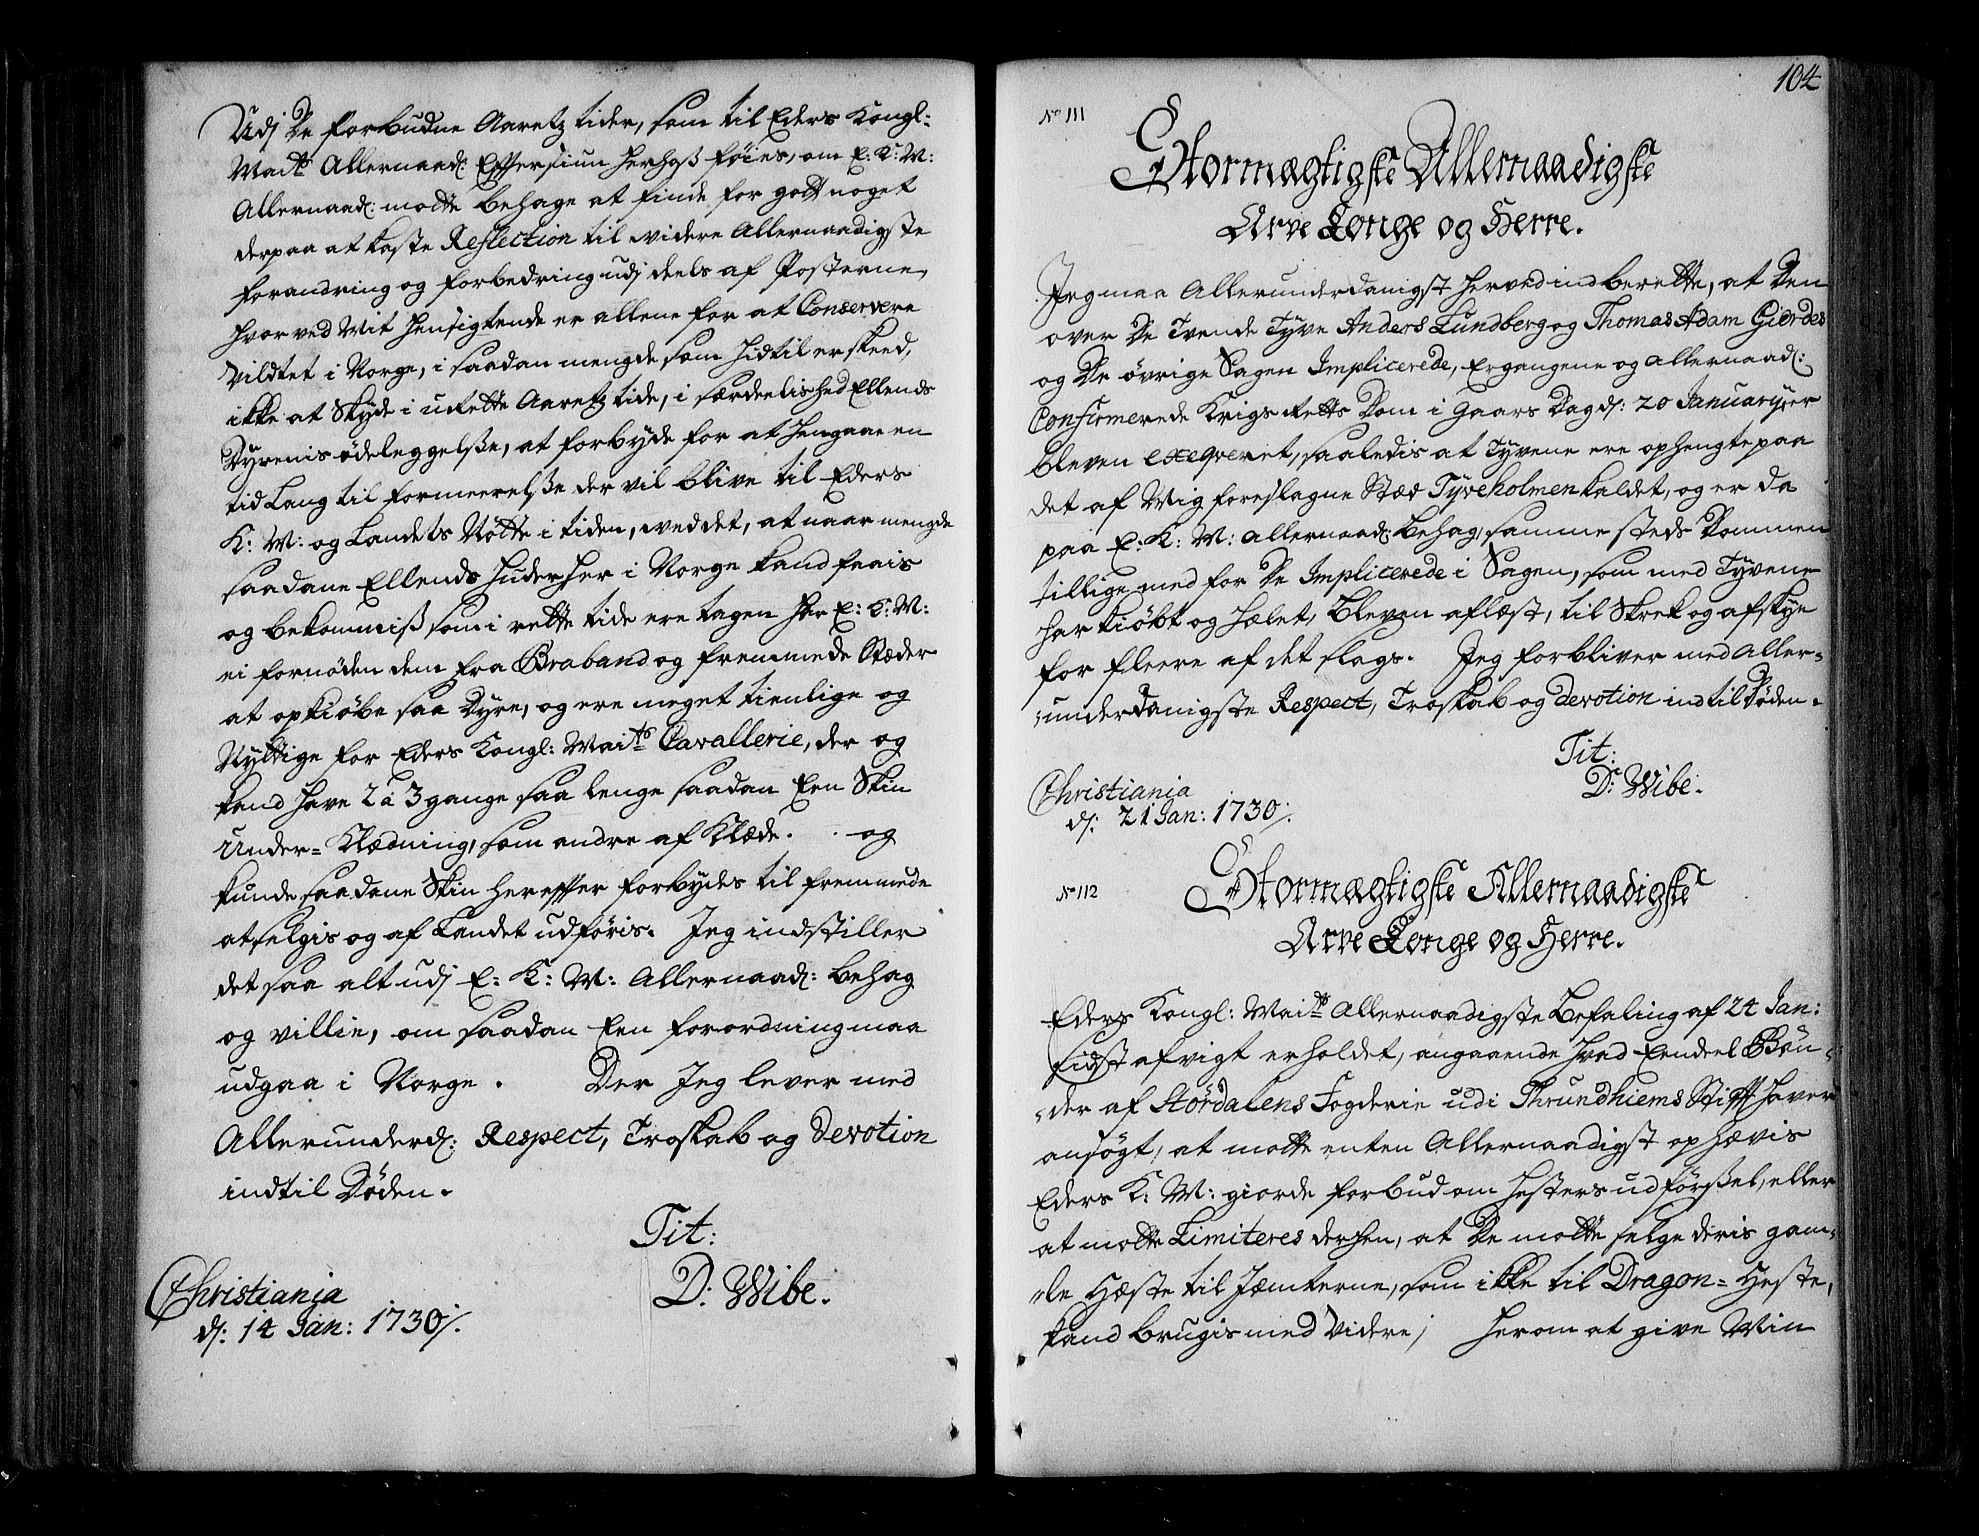 Udj De forbudne Aaretz tider, som til Eders Kongl:
Maits Allernaad: Efftersiun herhoß føies, om E: K: M:
Allernaad: motte behage at finde for gott noget
derpaa at kaste Reflection til videre Allernaadigste
forandring og forbedring udj deels af Posterne,
hvorved Mit hensigtende er allene for at Conservere
Vildtet i Norge, i saadan mengde som hidtil er skeed,
ikke at Skyde i urette Aaretz tide, i særdeelished Ellends
Dyrenis ødeleggelße, at forbyde for at hengaae en
tid Lang til formeerelße der vil blive til Eders
K: M: og Landets Nötte i tiden, ved det, at naar mengde
saadane Ellends huder her i Norge kand faais
og bekommis som i rette tide ere tagen har E: K: M:
ei fornöden dem fra Braband og fremmede Stæder
at opkiøbe saa Dyre, og ere meget tienlige og
Nyttige for Eders Kongl: Maits Cavallerie, der og
kand have 2 à 3 gange saa lenge saadan Een Skin
Under= Klædning, som andre af Klæde. og
kunde saadane Skin herefter forbydes til fremmede
at selgis og af Landet udføris. Jeg indstiller
det saa alt udj E: K: M: Allernaad: behag
og villie, om saadan Een forordning maa
udgaa i Norge. Der Jeg lever med
Allerunderd: Respect, Troskab og Devotion
indtil Döden.
Tit:
D: Wibe.
Christiania
d: 14 Jan: 1730/.
104
No 111
Stormægtigste Allernaadigste
Arve Konge og Herre.
Jeg maa Allerunderdanigst herved indberette, at Den
over De Tvende Tyve Anders Lundberg og Thomas Adam Giördes
og De øvrige Sagen Implicerede, Ergangene og allernaad:
Confirmerede Krigs Retts Dom i Gaars Dag d: 20 January, er
bleven exeqveret, saaledis at Tyvene ere ophengte paa
det af Mig foreslagne Stæd Tyveholmen kaldet, og er da
paa E: K: M: allernaad: behag, samme steds Dommen
tillige med for De Implicerede i Sagen, som med Tyvene
har kiöbt og hælet, bleven aflæst, til Skrek og afskye
for fleere af det slags. Jeg forbliver med Aller=
underdanigste Respect, Troskab og Devotion indtil Döden.
Tit:
D: Wibe.
Christiania
d: 21 Jan: 1730/.
No 112
Stormægtigste Allernaadigste
Arve Konge og Herre.
Eders Kongl: Maits Allernaadigste Befaling af 24 Jan:
Sidst afvigt erholdet, angaaende hvad Eendeel Bön=
der af Stördalens Fogderie udi Thrundhiems Stifft haver
ansögt, at motte enten Allernaadigst ophævis
Eders K: M: giorde forbud om hesters udförßel, eller
at motte Limiteres derhen, at De motte selge deris gam=
le Hæste til Jæmterne, som ikke til Dragon= Heste,
kand brugis med Videre; herom at give Min